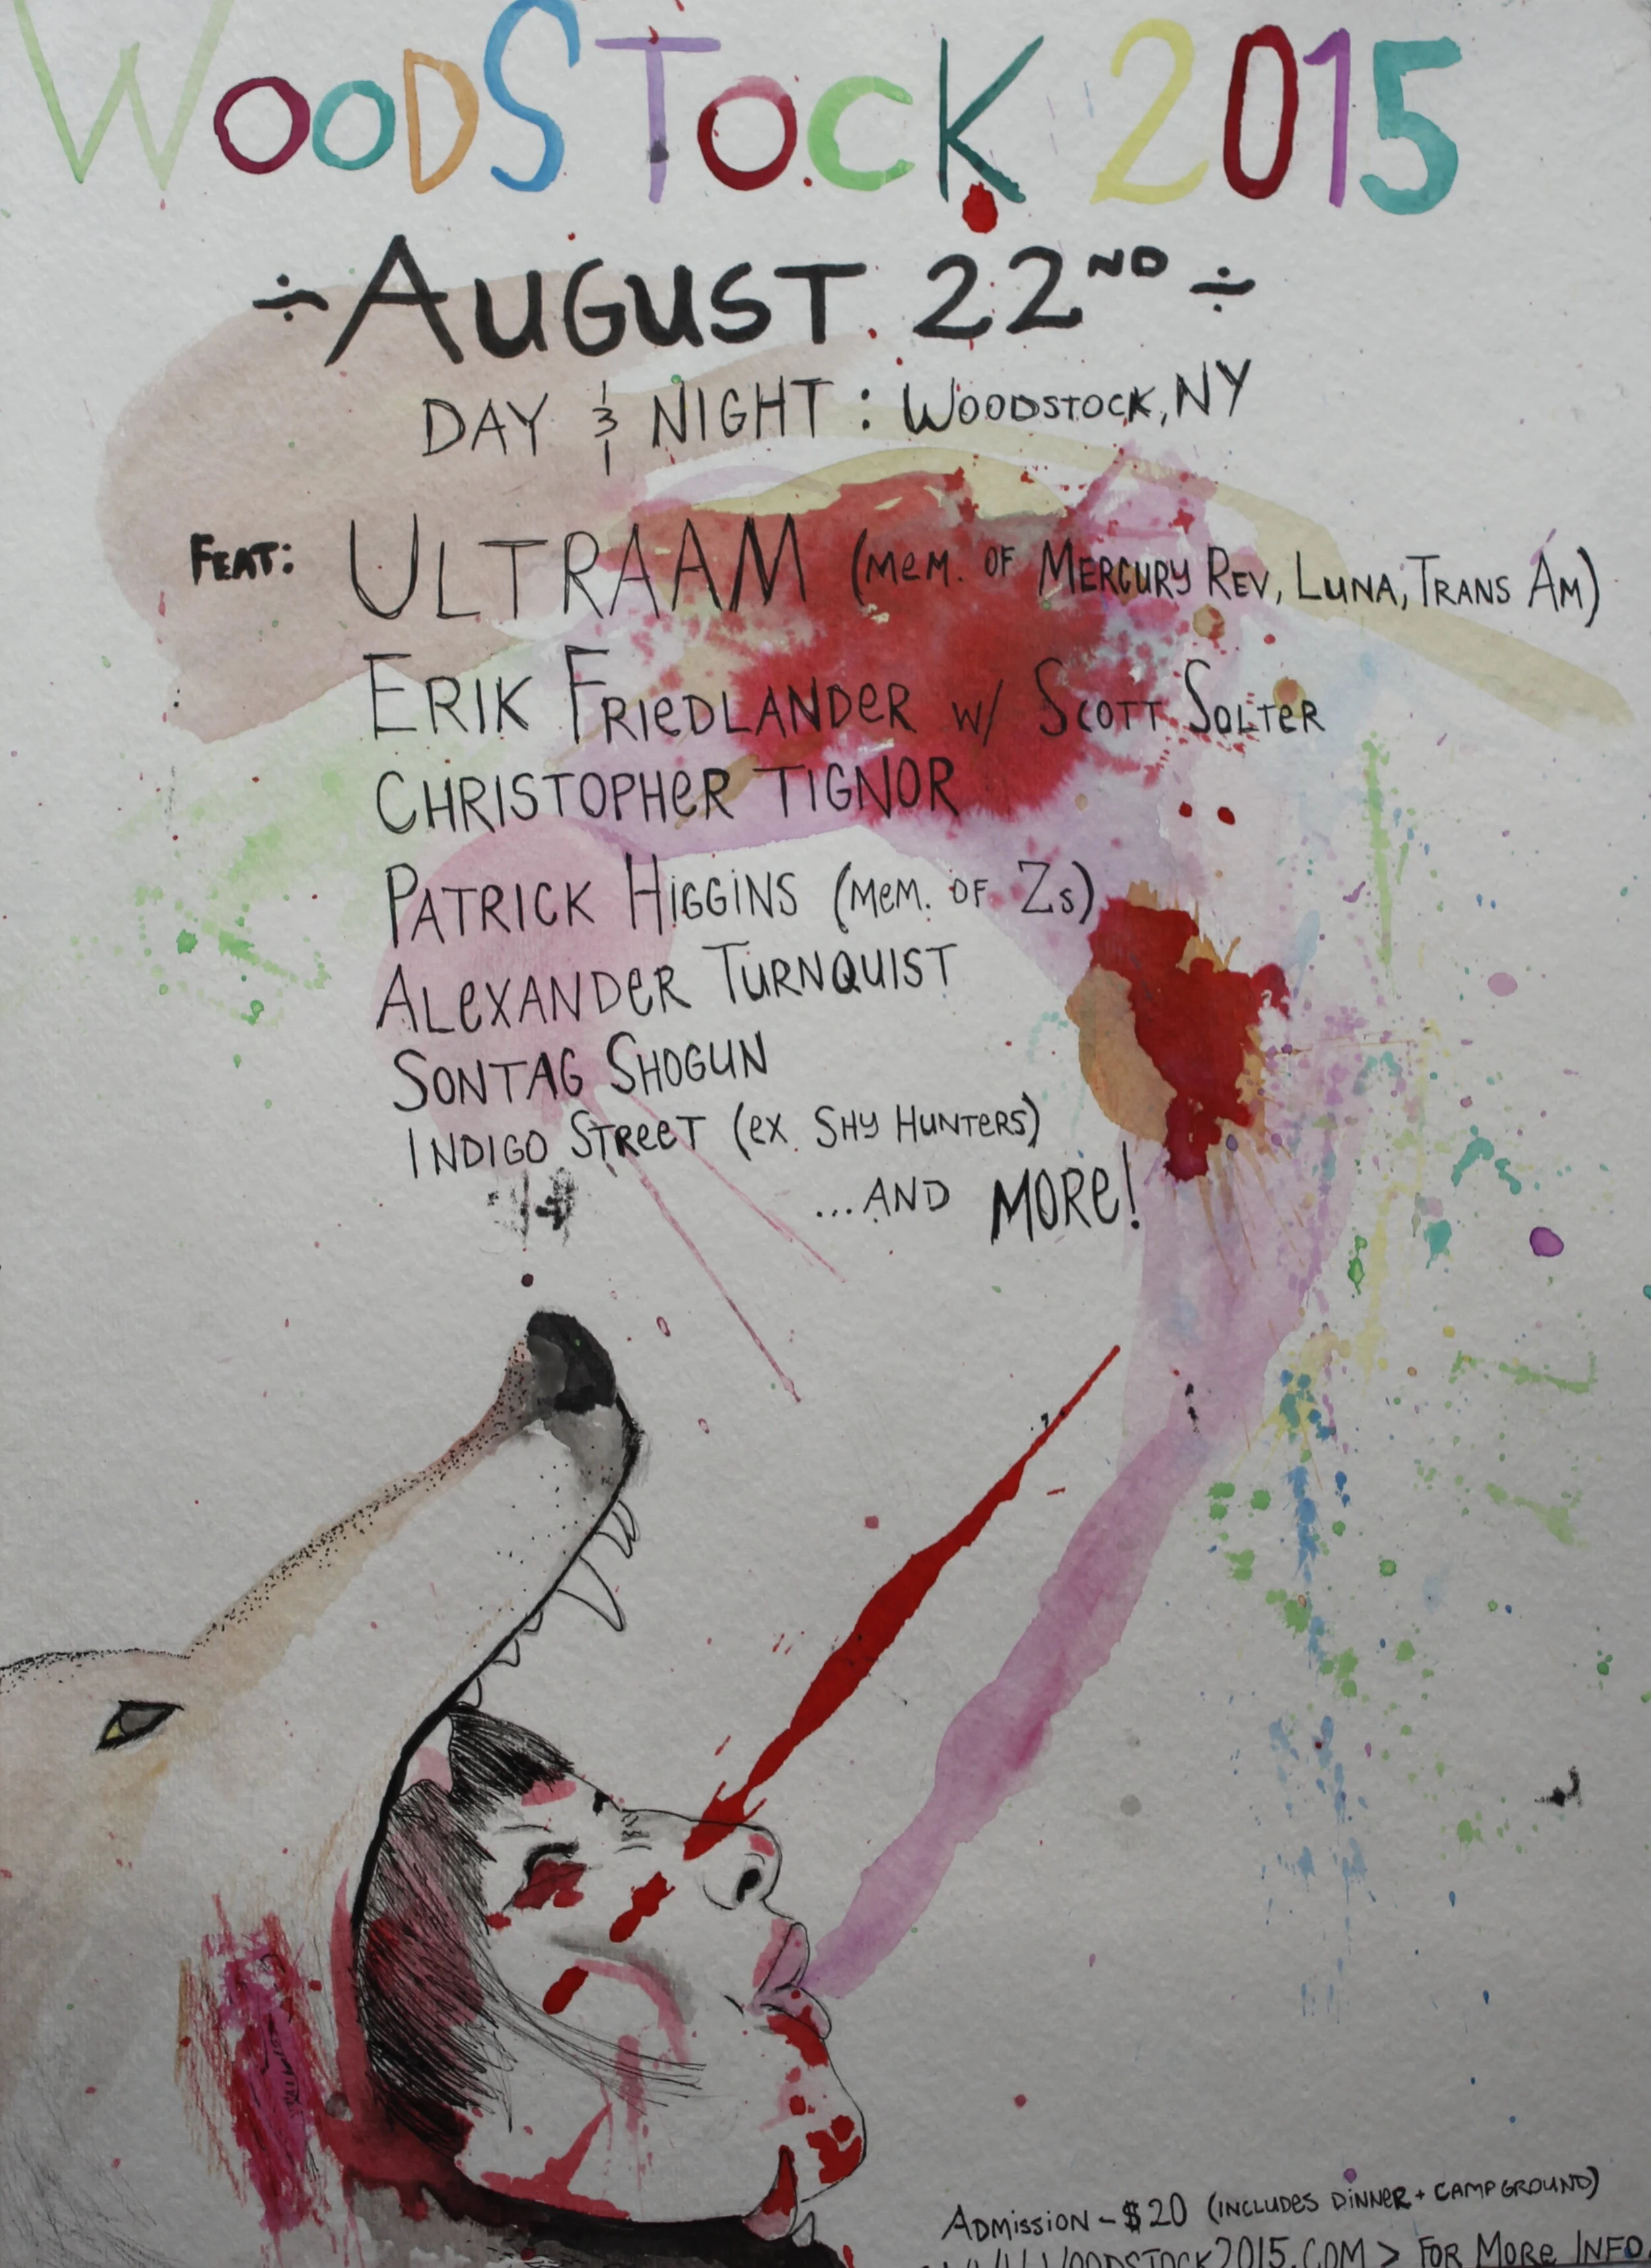 WOODSTOCK 2015
÷ AUGUST 22ND ÷
DAY & NIGHT : WOODSTOCK, NY
FEAT: ULTRAAM (MEM. OF MERCURY REV, LUNA, TRANS AM)
ERIK FRIEDLANDER W/ SCOTT SOLTER
CHRISTOPHER TIGNOR
PATRICK HIGGINS (MEM. OF Zs)
ALEXANDER TURNQUIST
SONTAG SHOGUN
INDIGO STREET (EX SHY HUNTERS)
...AND MORE!
ADMISSION - $20 (INCLUDES DINNER + CAMPGROUND)
WWW.WOODSTOCK2015.COM > FOR MORE INFO